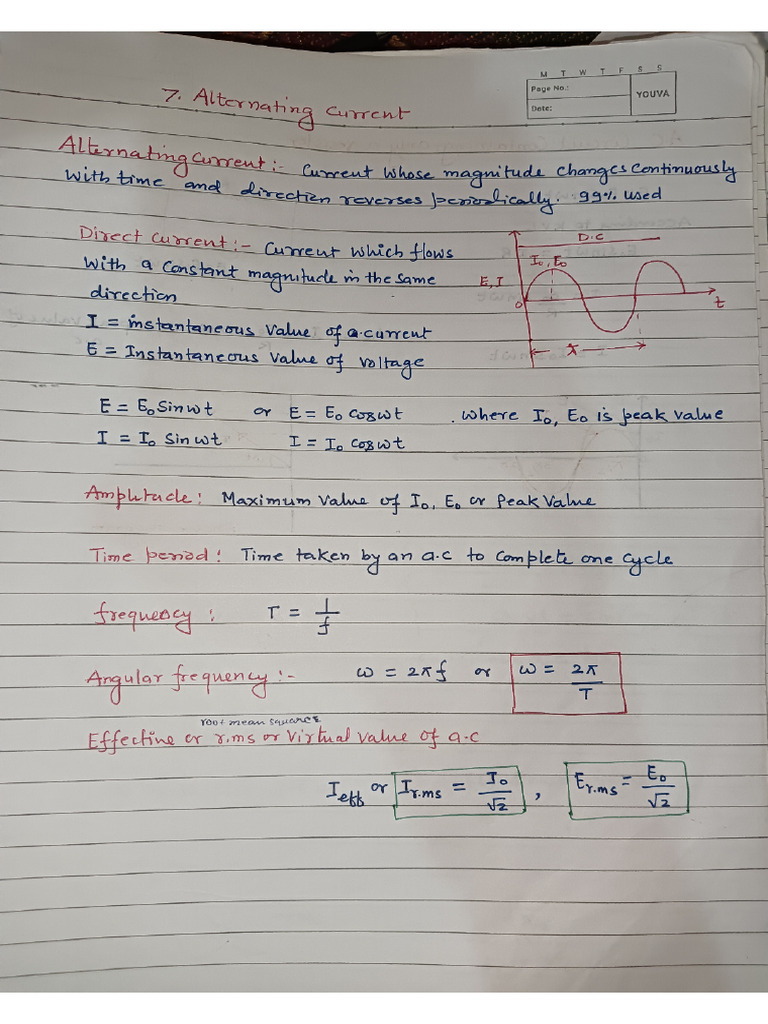 M T W T F S S
Page No.:
Date:
YOUVA
7. Alternating Current
Alternating current :- Current whose magnitude changes continuously
with time and direction reverses periodically. 99% used
Direct current :- Current which flows
with a constant magnitude in the same
direction
D.C
I₀, E₀
E, I
0
t
T
I = instantaneous value of a.current
E = Instantaneous value of voltage
E = E₀ Sin wt or E = E₀ cos wt . where I₀, E₀ is peak value
I = I₀ Sin wt I = I₀ cos wt
Amplitude : Maximum value of I₀, E₀ or Peak value
Time period : Time taken by an a.c to complete one cycle
frequency : T = 1/f
Angular frequency :- ω = 2πf or ω = 2π/T
root mean squares
Effective or r.ms or Virtual value of a.c
I_eff or I_r.ms = I₀/√2 , E_r.ms = E₀/√2